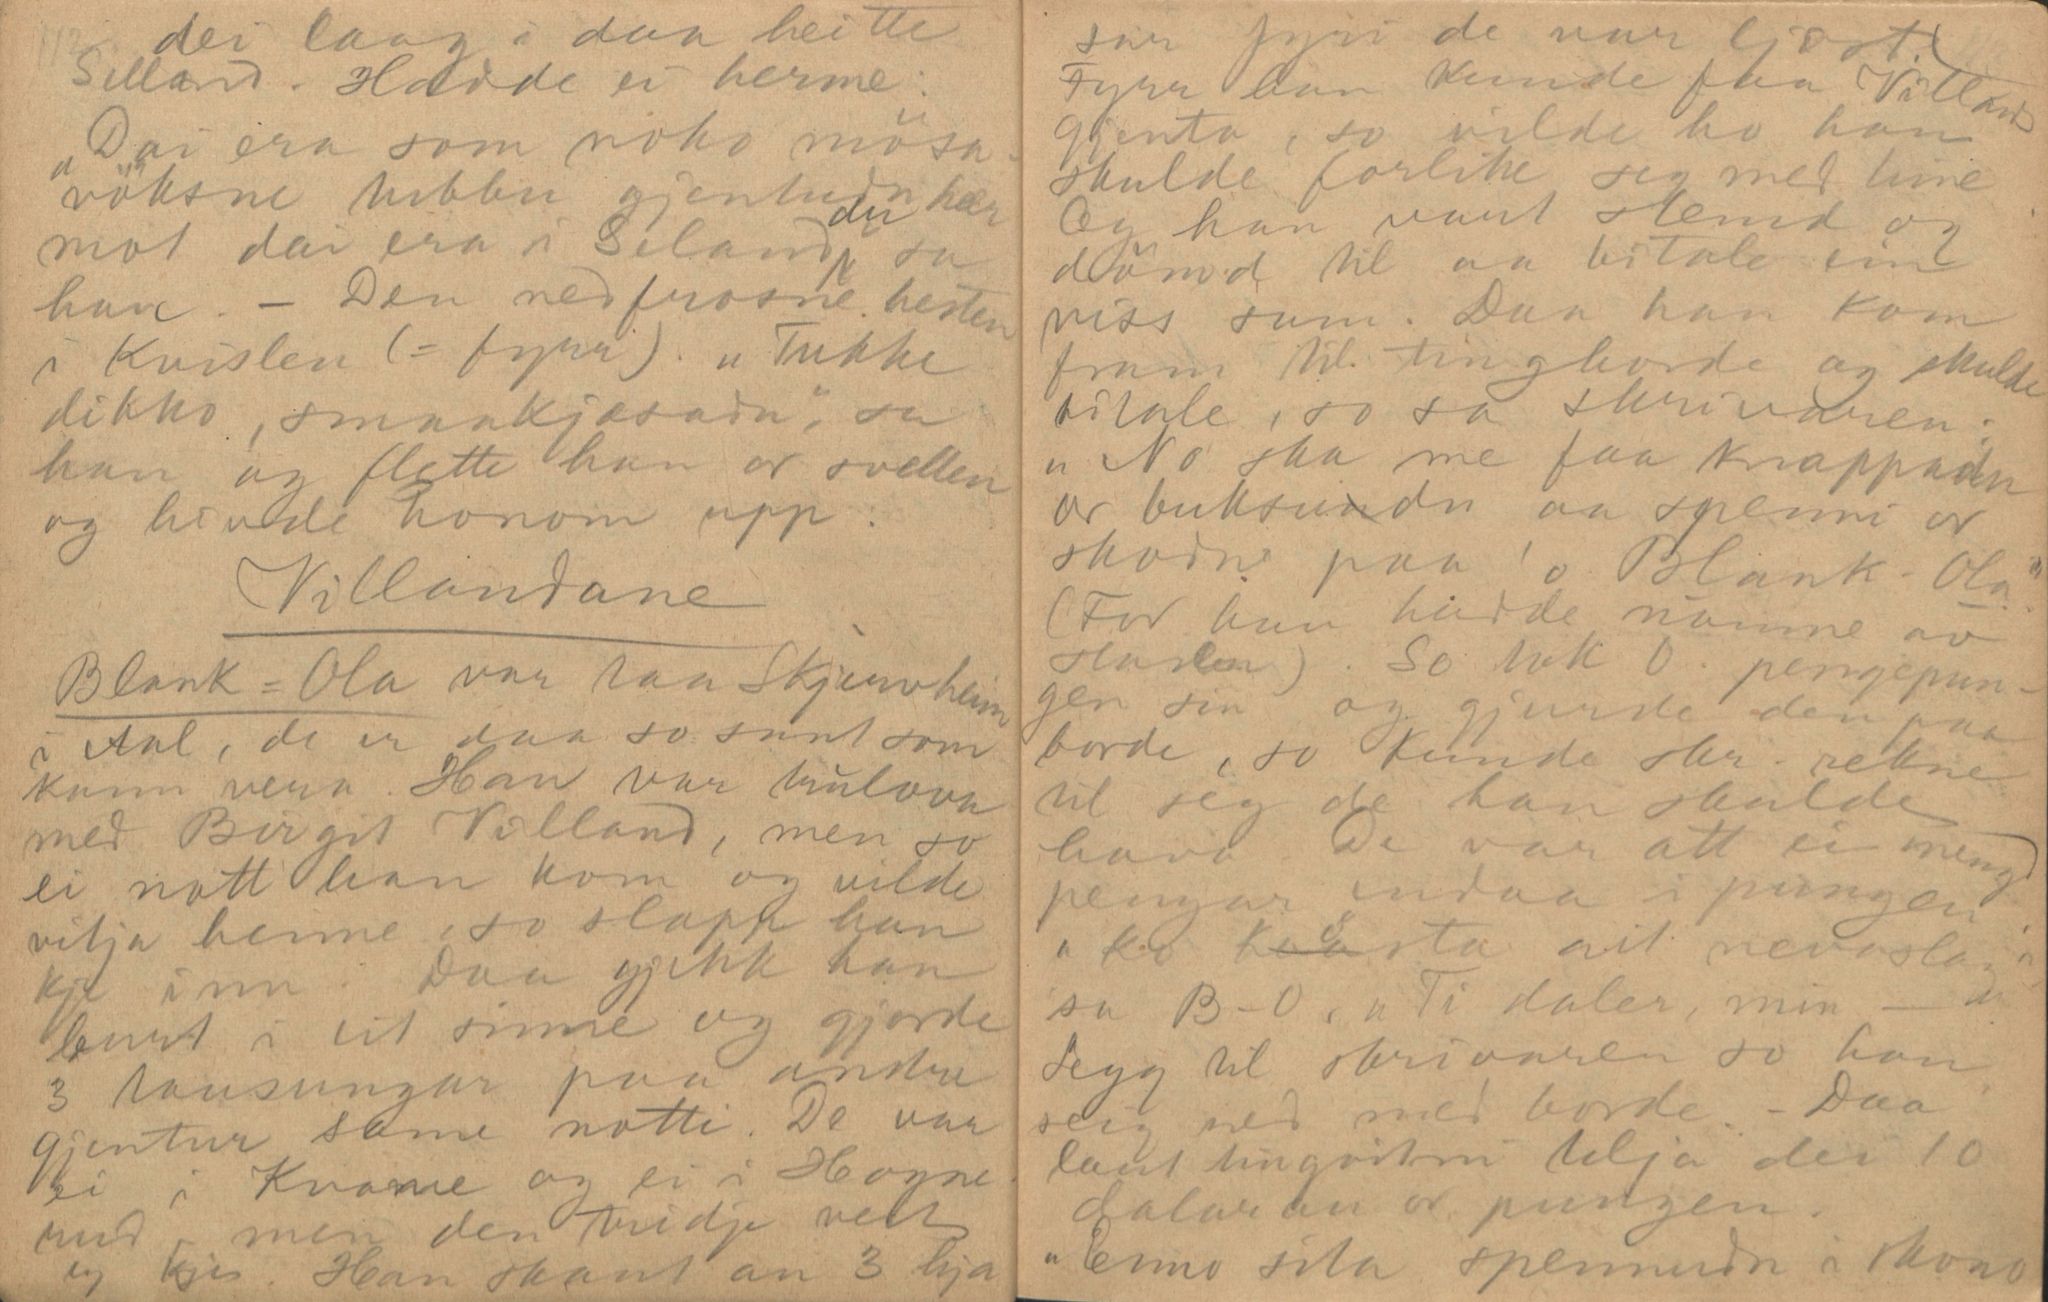 dei laag i daa heitte
Selland. Hadde ei herme:
"Dai era som noko mösa-
vöksne kubbu gjentudn her
mot dai era i Seland du", sa
han. – Den nedfrosne hesten
i Kvislen (= fyrr). "Tukke
dikko, smaakjæsadn", sa
han og flette han or svellen
og hivde honom upp.
Villandane
Blank-Ola var taa Skjervheim
i Aal, de er daa so sant som
kann vera. Han var trulova
med Birgit Villand, men so
ei nott han kom og vilde
vitja henne, so slapp han
kje inn. Daa gjekk han
burt i eit sinne og gjorde
3 lausungar paa andre
gjentur same notti. De var
ei i Kvame og ei i Hogne-
rud, men den tridje veit
eg kje. Han skaut an 3 hja
sør fyri de var ljost.
Fyrr han kunde faa Villand
gjenta, so vilde ho han
skulde forlike seg med hine
Og han vart stemd og
dömd til aa bitale ein
viss sum. Daa han kom
fram til tingborde og skulde
bitale, so sa skrivaren:
"No ska me faa knappadn
or buksundn aa spenni or
skodne paa 'o Blank-Ola"
(For han hadde namne av
stasen). So tok O. pengepun-
gen sin og gjorde den paa
borde, so kunde skr. rekne
til seg de han skulde
hava. De var att ei mengd
pengar endaa i pungen
"Ko kosta ait nevaslag"
sa B-O, "Ti daler, min –"
Segg til skrivaren so han
seig ned med borde. – Daa
laut tingvitni telja dei 10
dalaran or pungen.
"Enno sita spennudn i skono